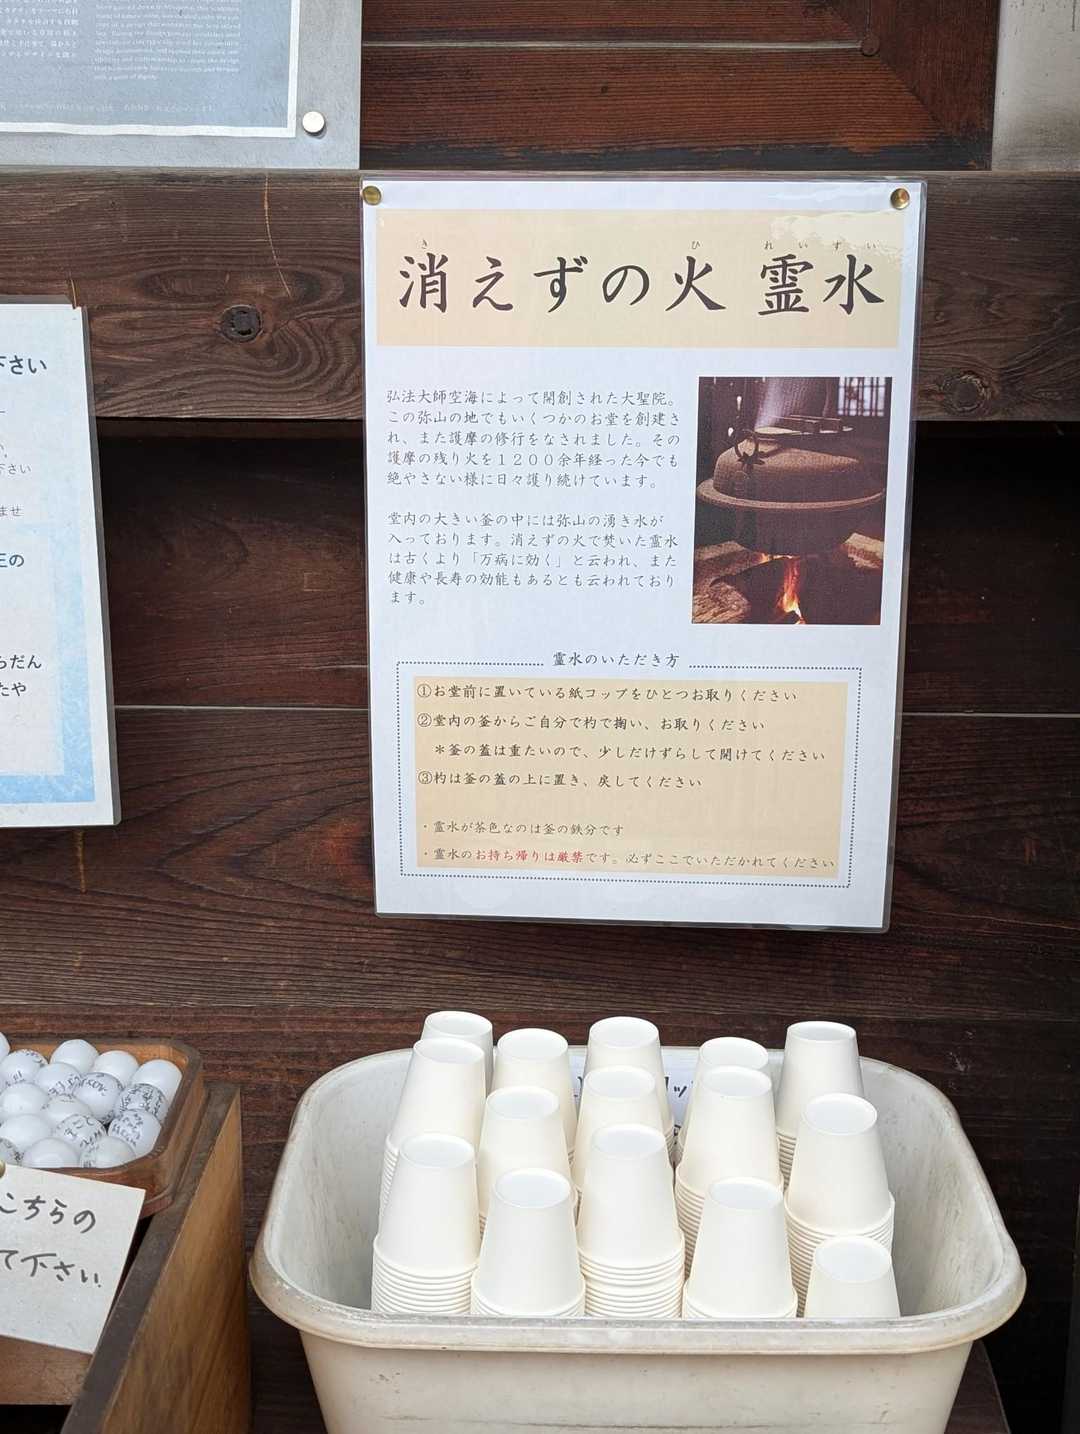 下さい
下さい
ませ
王の
らだん
たや
消えずの火 霊水
き ひ れいすい
弘法大師空海によって開創された大聖院。
この弥山の地でもいくつかのお堂を創建さ
れ、また護摩の修行をなされました。その
護摩の残り火を1200余年経った今でも
絶やさない様に日々護り続けています。
堂内の大きい釜の中には弥山の湧き水が
入っております。消えずの火で焚いた霊水
は古くより「万病に効く」と云われ、また
健康や長寿の効能もあるとも云われており
ます。
霊水のいただき方
①お堂前に置いている紙コップをひとつお取りください
②堂内の釜からご自分で杓で掬い、お取りください
＊釜の蓋は重たいので、少しだけずらして開けてください
③杓は釜の蓋の上に置き、戻してください
・霊水が茶色なのは釜の鉄分です
・霊水のお持ち帰りは厳禁です。必ずここでいただかれてください
こちらの
て下さい